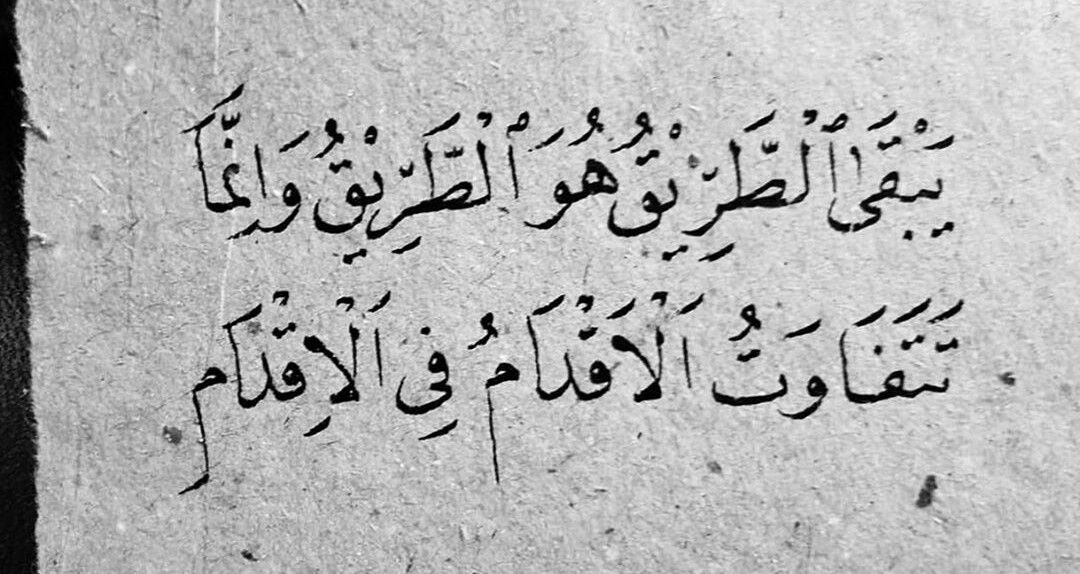 يَبْقَى ٱلْطَّرِيْقُ هُوَ ٱلْطَّرِّيْقُ وَاِنَّمَا
تَتَفَاوَتُ اَلْاَقْدَامُ فِي اَلْاِقْدَامِ